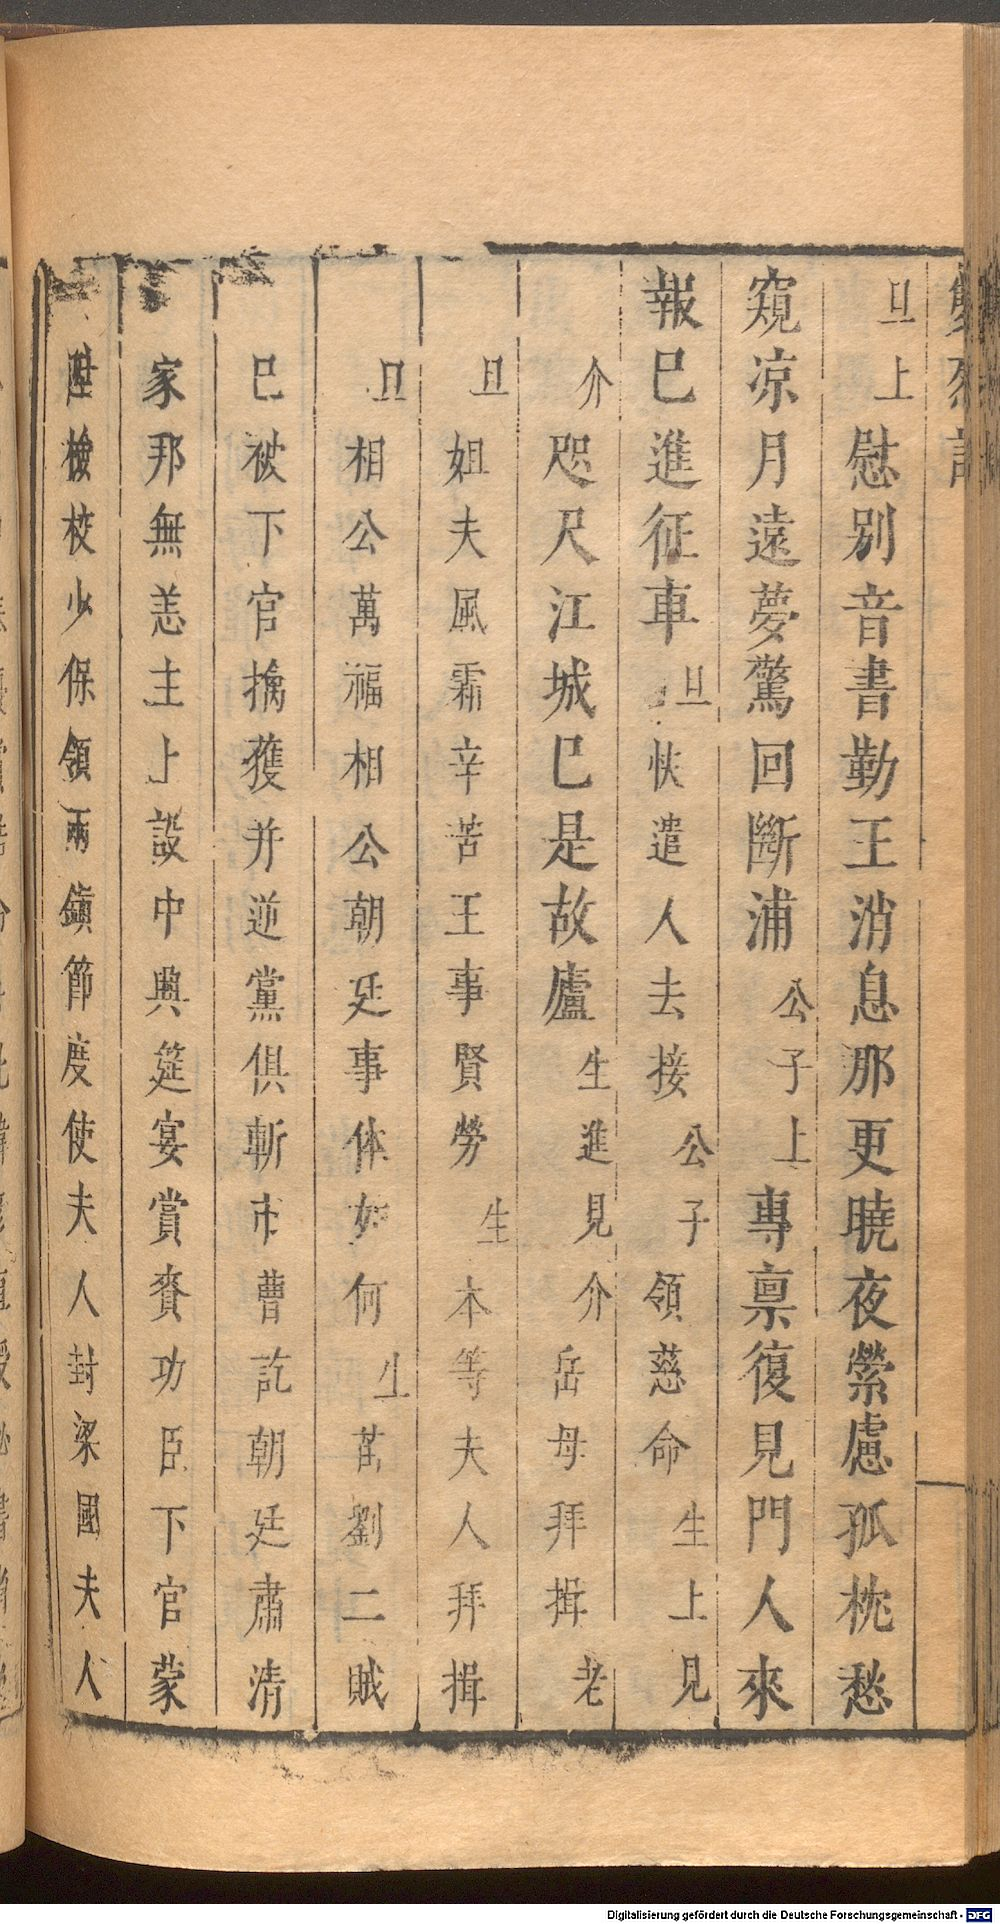 旦上慰別音書勤王消息那更曉夜縈慮孤枕愁
窺凉月遠夢驚回斷浦公子上專禀復見門人來
報巳進征車旦快遣人去接公子領慈命生上見
介咫尺江城巳是故廬生進見介岳母拜揖老
旦姐夫風霜辛苦王事賢勞生本等夫人拜揖
旦相公萬福相公朝廷事体如何生苗劉二賊
巳被下官擒獲并逆黨俱斬市曹訖朝廷肅清
家邦無恙主上設中興筵宴賞賚功臣下官蒙
陞檢校少保領兩鎮節度使夫人封梁國夫人
Digitalisierung gefördert durch die Deutsche Forschungsgemeinschaft - DFG